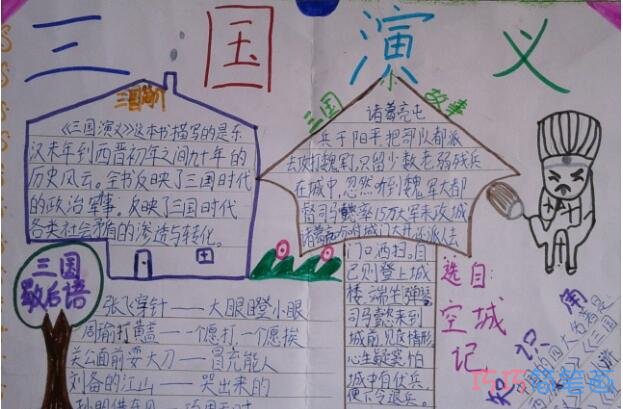 三国演义
三国简介
《三国演义》这本书描写的是东
汉末年到西晋初年之间九十年的
历史风云。全书反映了三国时代
的政治军事,反映了三国时代
各类社会矛盾的渗透与转化。
三国 故事
诸葛亮屯
兵于阳平,把部队都派
去攻打魏军,只留少数老弱残兵
在城中,忽然听到魏军大都
督司马懿率15万大军来攻城,
诸葛亮
城门大开,还派人去
门口洒扫,自
己则登上城
楼,端坐弹琴
司马懿来到
城前,见此情形
心生疑窦,怕
城中有伏兵,
便下令退兵。
选自:
空城记
三国
歇后语
张飞穿针——大眼瞪小眼
周瑜打黄盖——一个愿打,一个愿挨
关公面前耍大刀——冒充能人
刘备的江山——哭出来的
知识角
的四大名著